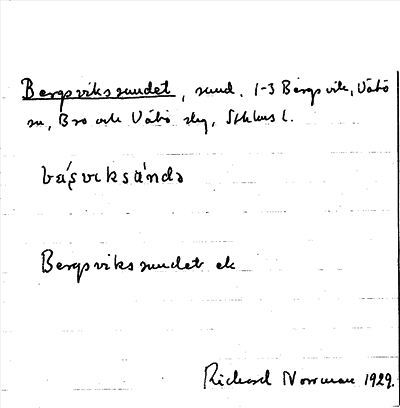 Bergsvikssundet, sund. 1-3 Bergsvik, Vätö
sn, Bro och Vätö skg, Sthlms l.
bárviksúndə
Bergsvikssundet ek
Richard Norrman 1929.